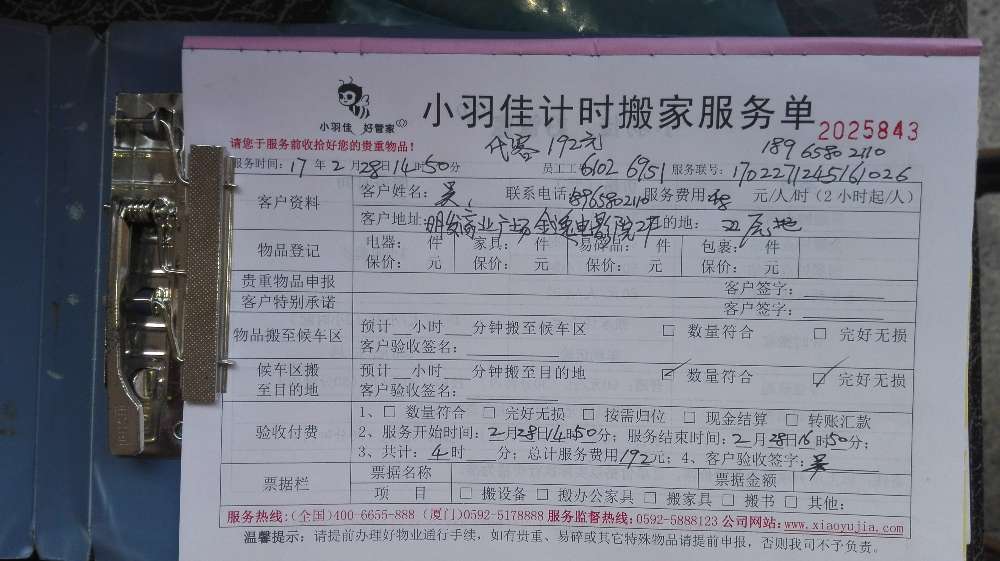 小羽佳计时搬家服务单
小羽佳 好管家
2025843
请您于服务前收拾好您的贵重物品!
代客 192元
18965802110
服务时间: 17 年 2 月 28 日 14 时 50 分 员工工 6102 6951 服务联号: 170227124516 1026
客户资料
客户姓名: 吴 联系电话 18965802110 服务费用 48 元/人/时 (2小时起/人)
客户地址: 明发商业广场 金逸电影院2F 目的地:
物品登记
电器: 件 家具: 件 易碎品: 件 包裹: 件
保价: 元 保价: 元 保价: 元 保价: 元
贵重物品申报 客户签字:
客户特别承诺 客户签字:
物品搬至候车区
预计__小时__分钟搬至候车区 □ 数量符合 □ 完好无损
客户验收签名:
候车区搬至目的地
预计__小时__分钟搬至目的地 ☑ 数量符合 ☑ 完好无损
客户验收签名:
验收付费
1、□ 数量符合 □ 完好无损 □ 按需归位 □ 现金结算 □ 转账汇款
2、服务开始时间: 2月28日14时50分; 服务结束时间: 2月28日16时50分;
3、共计: 4时__分; 总计服务费用192元; 4、客户验收签字: 吴
票据栏
票据名称 票据金额
项 目 □ 搬设备 □ 搬办公家具 □ 搬家具 □ 搬书 □ 其他:
服务热线:(全国)400-6655-888 (厦门)0592-5178888 服务监督热线:0592-5888123 公司网站:www.xiaoyujia.com
温馨提示: 请提前办理好物业通行手续, 如有贵重、易碎或其它特殊物品请提前申报, 否则我司不予负责。